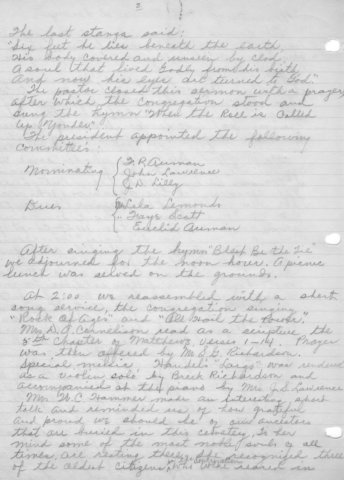 3
The last stanza said:
"Six feet he lies beneath the earth,
His body covered and unseen by clod,
A soul that lived Godly from his birth
And now his eyes are turned to God"
The pastor closed this sermon with a prayer
after which, the congregation stood and
sung the hymn "When the Roll is Called
Up Yonder".
The president appointed the following
committees.
Nominating
F.R. Auman
John Lawrence
J.D. Lilly
Dues
Lula Lemonds
" Faye Scott
Euclid Auman
After singing the hymn "Blest Be the Tie"
we adjourned for the noon hour. A picnic
lunch was served on the grounds.
At 2:00 we reassembled with a short
song service, the congregation singing
"Rock of Ages" and "All Hail the Power."
Mrs. D.A. Cornelison read as a scripture the
5th Chapter of Matthew, verses 1-14. Prayer
was then offered by Mr. Richardson.
Special music, "Handel's Largo" was rendered
as a violin solo by Richardson and
accompanied at the piano by Mrs. Lawrence
Mrs. W.C. Hammer made an interesting short
talk and reminded us of how grateful
and proud we should be of our ancestors
that are buried in this cemetery. In her
mind some of the most noble souls of all
times, are resting there. She recognized three
of the oldest citizens, who were reared in